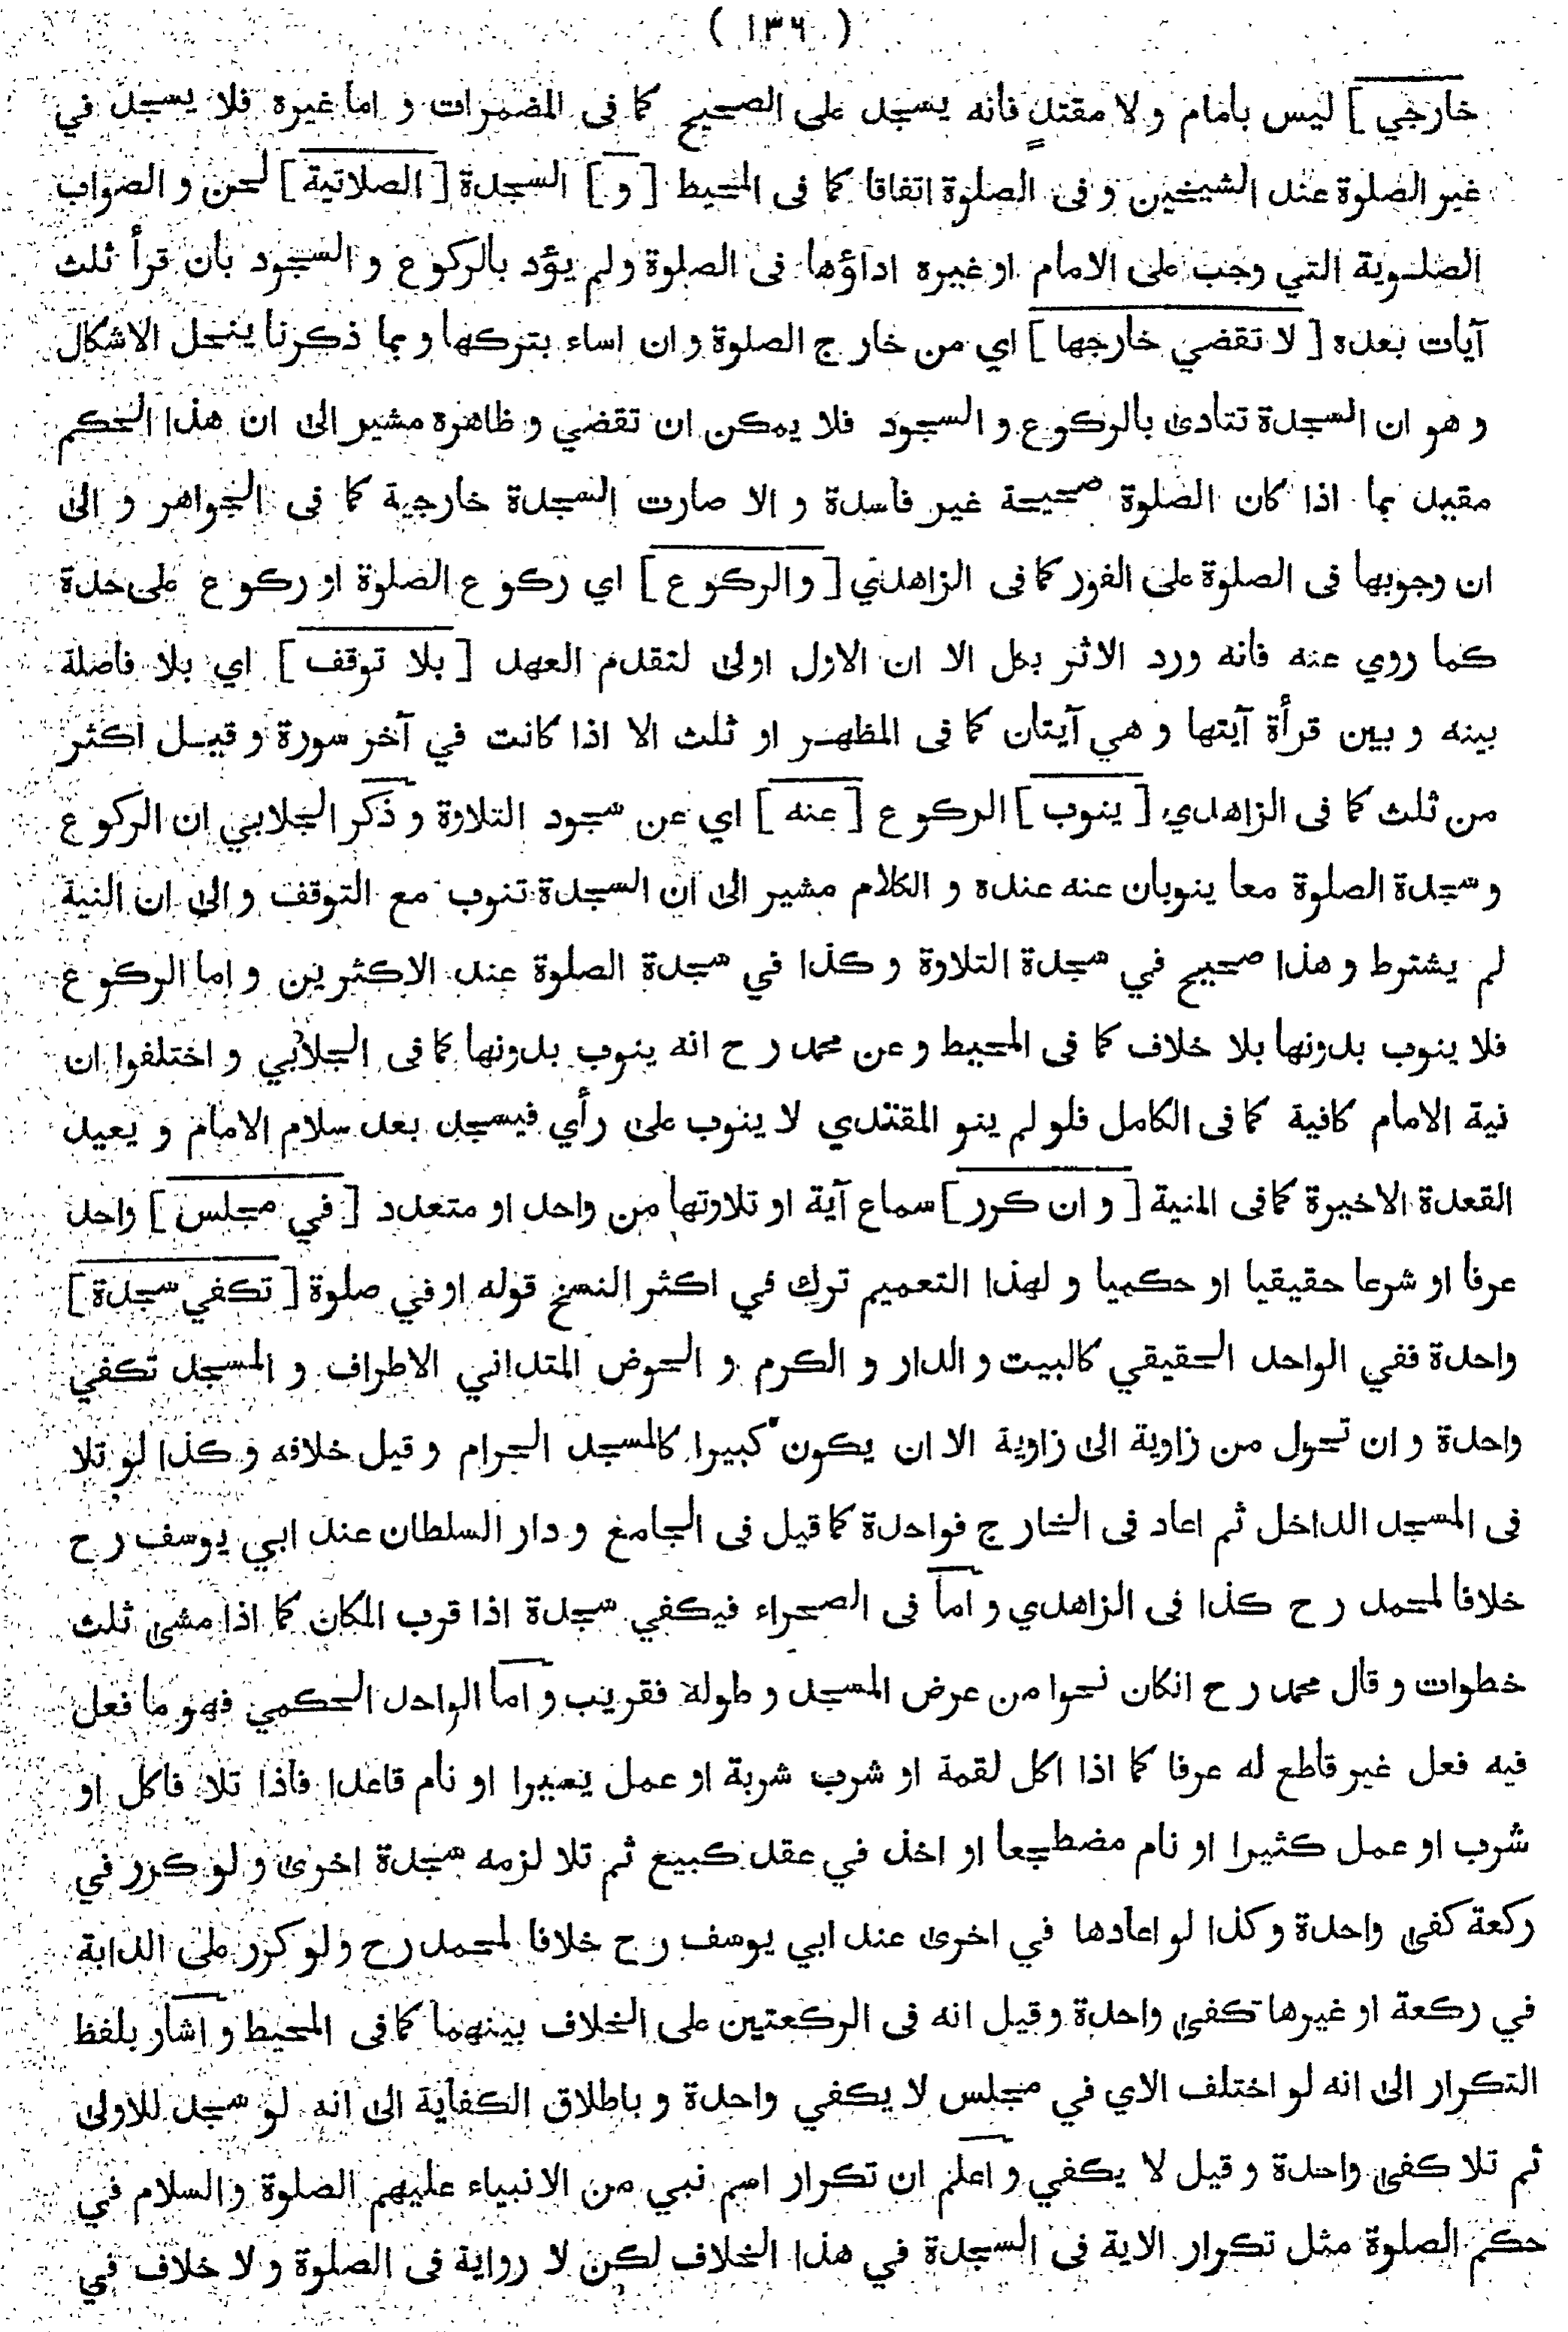 ( ١٣٦ )
خارجي ] ليس بأمام و لا مقتدٍ فأنه يسجد على الصحيح كما فى المضمرات و اما غيره فلا يسجد في
غير الصلوة عند الشيخين و فى الصلوة اتفاقا كما فى المحيط [ و ] السجدة [ الصلاتية ] لحن و الصواب
الصلوية التي وجب على الامام او غيره اداؤها فى الصلوة ولم يؤد بالركوع و السجود بأن قرأ ثلث
آيات بعده [ لا تقضي خارجها ] اي من خارج الصلوة و ان اساء بتركها و بما ذكرنا ينحل الاشكال
و هو ان السجدة تتادى بالركوع و السجود فلا يمكن ان تقضي و ظاهره مشير الى ان هذا الحكم
مقيد بما اذا كان الصلوة صحيحة غير فاسدة و الا صارت السجدة خارجية كما فى الجواهر و الى
ان وجوبها فى الصلوة على الفور كما فى الزاهدي [ والركوع ] اي ركوع الصلوة او ركوع على حدة
كما روي عنه فأنه ورد الاثر بكل الا ان الاول اولى لتقدم العهد [ بلا توقف ] اي بلا فاصلة
بينه و بين قرأة آيتها و هي آيتان كما فى المظهر او ثلث الا اذا كانت في آخر سورة و قيل اكثر
من ثلث كما فى الزاهدي [ ينوب ] الركوع [ عنه ] اي عن سجود التلاوة و ذكر الجلابي ان الركوع
و سجدة الصلوة معا ينوبان عنه عنده و الكلام مشير الى ان السجدة تنوب مع التوقف و الى ان النية
لم يشترط و هذا صحيح في سجدة التلاوة و كذا في سجدة الصلوة عند الاكثرين و اما الركوع
فلا ينوب بدونها بلا خلاف كما فى المحيط و عن محمد رح انه ينوب بدونها كما فى الجلابي و اختلفوا ان
نية الامام كافية كما فى الكامل فلو لم ينو المقتدي لا ينوب على رأي فيسجد بعد سلام الامام و يعيد
القعدة الاخيرة كما فى المنية [ و ان كرر ] سماع آية او تلاوتها من واحد او متعدد [ في مجلس ] واحد
عرفا او شرعا حقيقيا او حكميا و لهذا التعميم ترك في اكثر النسخ قوله او في صلوة [ تكفي سجدة ]
واحدة ففي الواحد الحقيقي كالبيت و الدار و الكرم و الحوض المتداني الاطراف و المسجد تكفي
واحدة و ان تحول من زاوية الى زاوية الا ان يكون كبيرا كالمسجد الحرام و قيل خلافه و كذا لو تلا
فى المسجد الداخل ثم اعاد فى الخارج فواحدة كما قيل فى الجامع و دار السلطان عند ابي يوسف رح
خلافا لمحمد رح كذا فى الزاهدي و اما فى الصحراء فيكفي سجدة اذا قرب المكان كما اذا مشى ثلث
خطوات و قال محمد رح انكان نحوا من عرض المسجد و طوله فقريب و اما الواحد الحكمي فهو ما فعل
فيه فعل غير قاطع له عرفا كما اذا اكل لقمة او شرب شربة او عمل يسيرا او نام قاعدا فأذا تلا فاكل او
شرب او عمل كثيرا او نام مضطجعا او اخذ في عقد كبيع ثم تلا لزمه سجدة اخرى و لو كرر في
ركعة كفى واحدة و كذا لو اعادها في اخرى عند ابي يوسف رح خلافا لمحمد رح و لو كرر على الدابة
في ركعة او غيرها كفى واحدة و قيل انه فى الركعتين على الخلاف بينهما كما فى المحيط و اشار بلفظ
التكرار الى انه لو اختلف الاي في مجلس لا يكفي واحدة و باطلاق الكفاية الى انه لو سجد للاولى
ثم تلا كفى واحدة و قيل لا يكفي و اعلم ان تكرار اسم نبي من الانبياء عليهم الصلوة والسلام في
حكم الصلوة مثل تكرار الاية فى السجدة في هذا الخلاف لكن لا رواية فى الصلوة و لا خلاف في